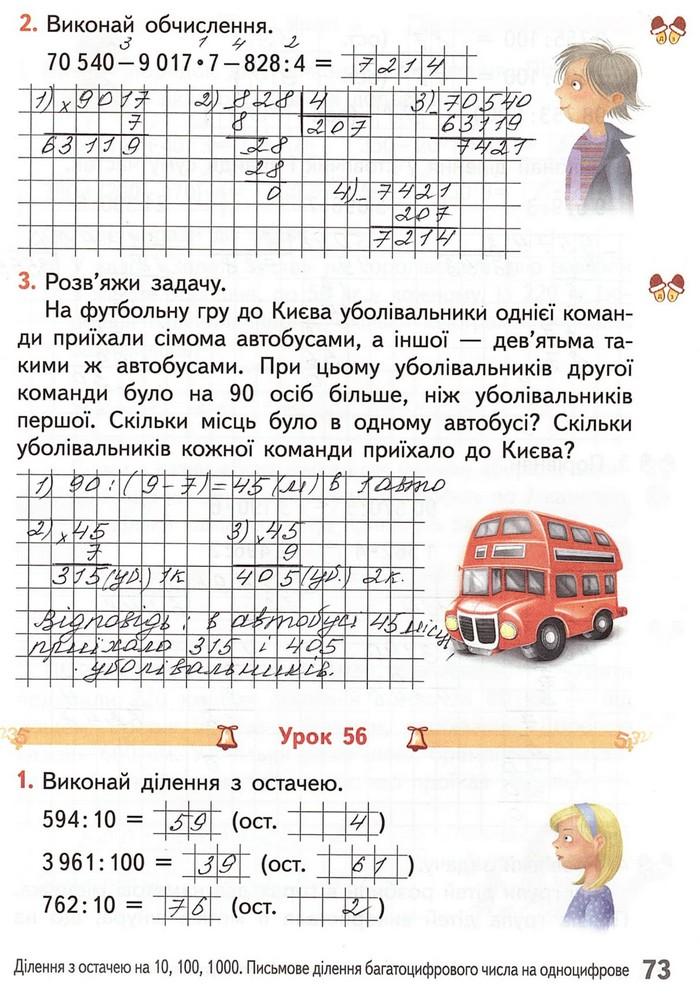 2. Виконай обчислення.
3 1 4 2
70 540 – 9 017 · 7 – 828 : 4 = 7214
1) × 9017 2) – 828 | 4 3) – 70540
7 8 207 63119
63119 28 7421
28
0 4) – 7421
207
7214
3. Розв'яжи задачу.
На футбольну гру до Києва уболівальники однієї коман-
ди приїхали сімома автобусами, а іншої — дев'ятьма та-
кими ж автобусами. При цьому уболівальників другої
команди було на 90 осіб більше, ніж уболівальників
першої. Скільки місць було в одному автобусі? Скільки
уболівальників кожної команди приїхало до Києва?
1) 90 : (9 – 7) = 45 (м) в 1 авто
2) × 45 3) × 45
7 9
315 (уб.) 1к 405 (уб.) 2к.
Відповідь : в автобусі 45 місць,
приїхало 315 і 405
уболівальників.
Урок 56
1. Виконай ділення з остачею.
594 : 10 = 59 (ост. 4)
3 961 : 100 = 39 (ост. 61)
762 : 10 = 76 (ост. 2)
Ділення з остачею на 10, 100, 1000. Письмове ділення багатоцифрового числа на одноцифрове 73